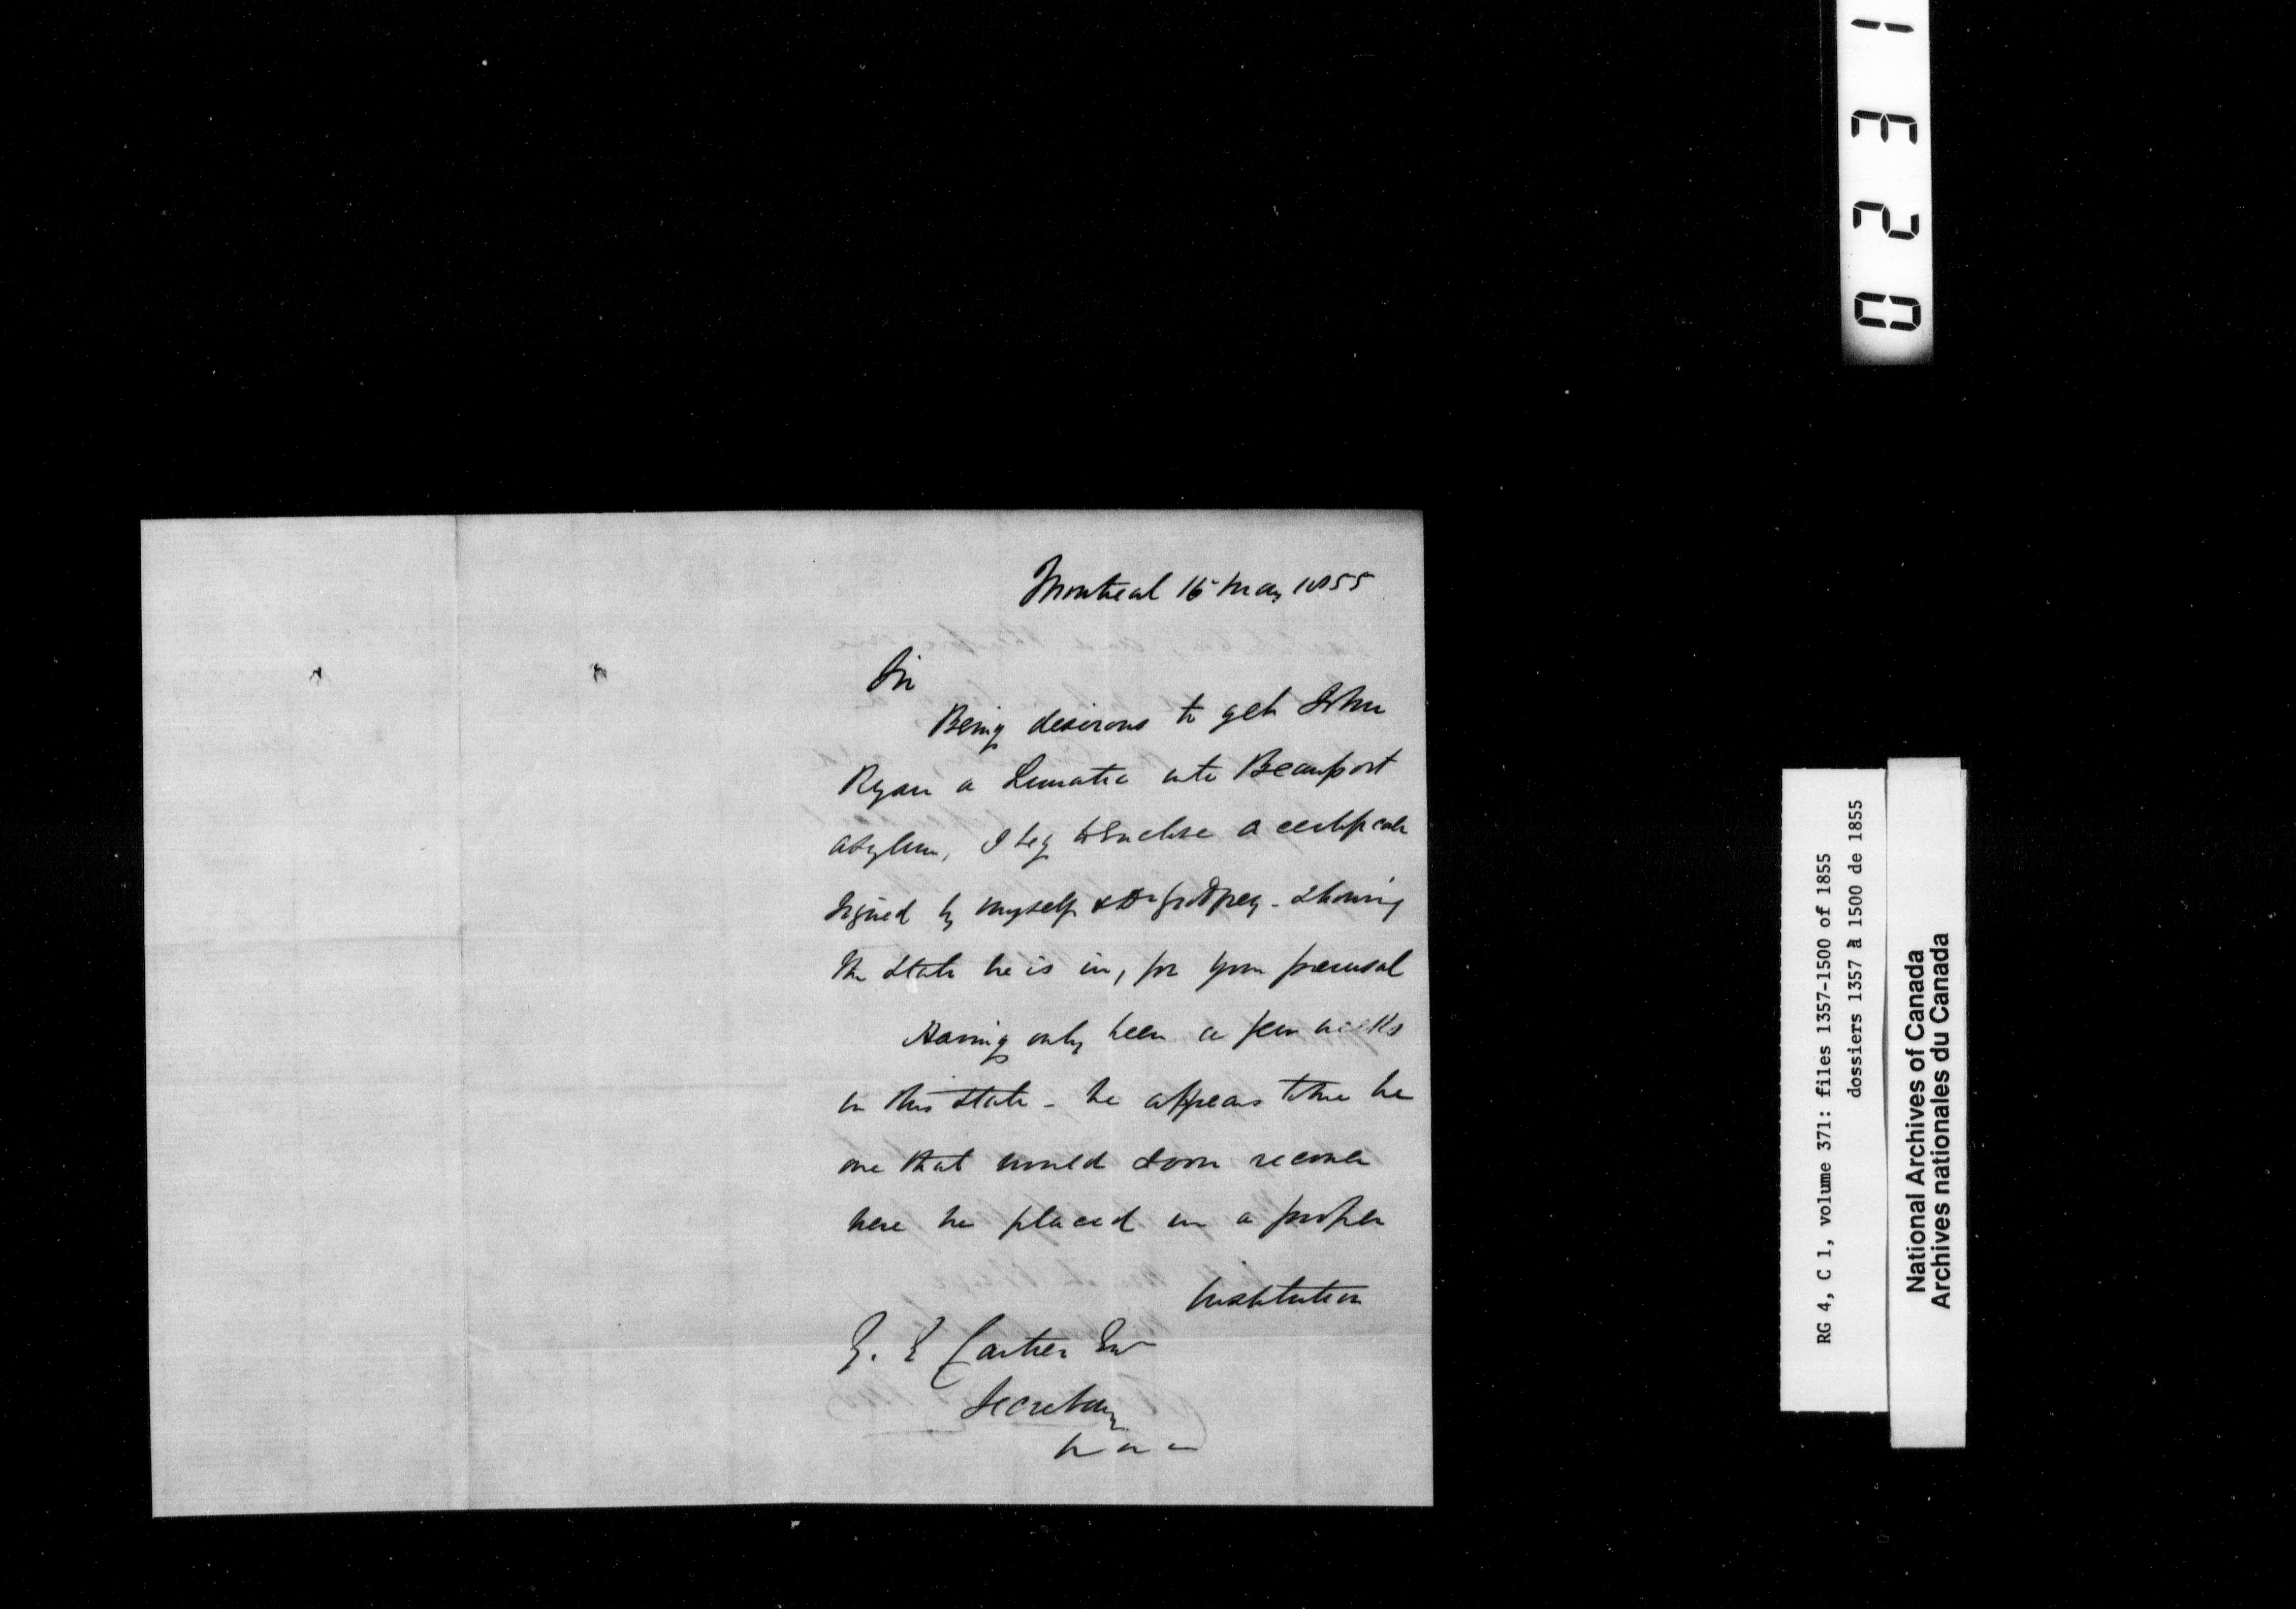 Montreal 16 May 1855
Sir
Being desirous to get John
Ryan a Lunatic into Beauport
asylum, I beg to Enclose a certificate
signed by myself & Dr Godfrey - showing
the state he is in, for your perusal
Having only been a few weeks
in this state - he appears to me be
one that would soon recover
were he placed in a proper
Institution
G. E Cartier Esq
Secretary
RG 4, C 1, volume 371: files 1357-1500 of 1855
dossiers 1357 à 1500 de 1855
National Archives of Canada
Archives nationales du Canada
0231